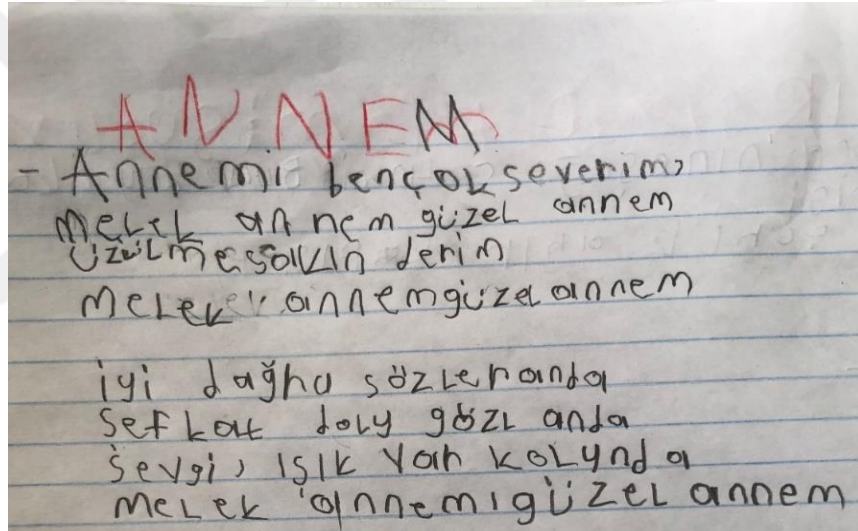 ANNEM
- Annemi bençokseverim,
melek an nem güzel annem
Üzülmesakın derim
melek annemgüzel annem
iyi dağhu sözleranda
Sefkat doly gözl anda
Sevgi, ışık Var kolynda
melek annemıgüzel annem